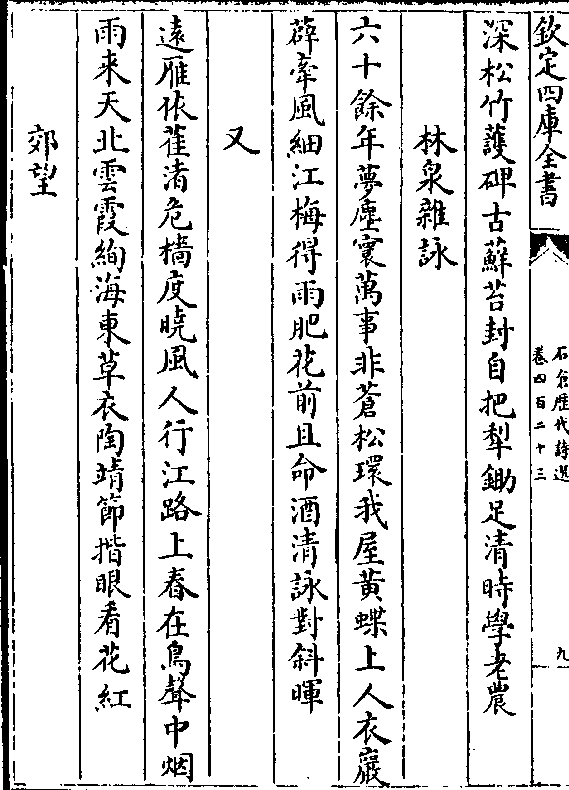 欽定四庫全書
石倉歷代詩選
卷四百二十三
九
深松竹護碑古蘇苔封自把犁鋤足清時學老農
林泉雜詠
六十餘年夢塵寰萬事非蒼松環我屋黃蝶上人衣巖
薜牽風細江梅得雨肥花前且命酒清詠對斜暉
又
遠雁依萑渚危檣度曉風人行江路上春在鳥聲中烟
雨来天北雲霞絢海東草衣陶靖節揩眼看花紅
郊望